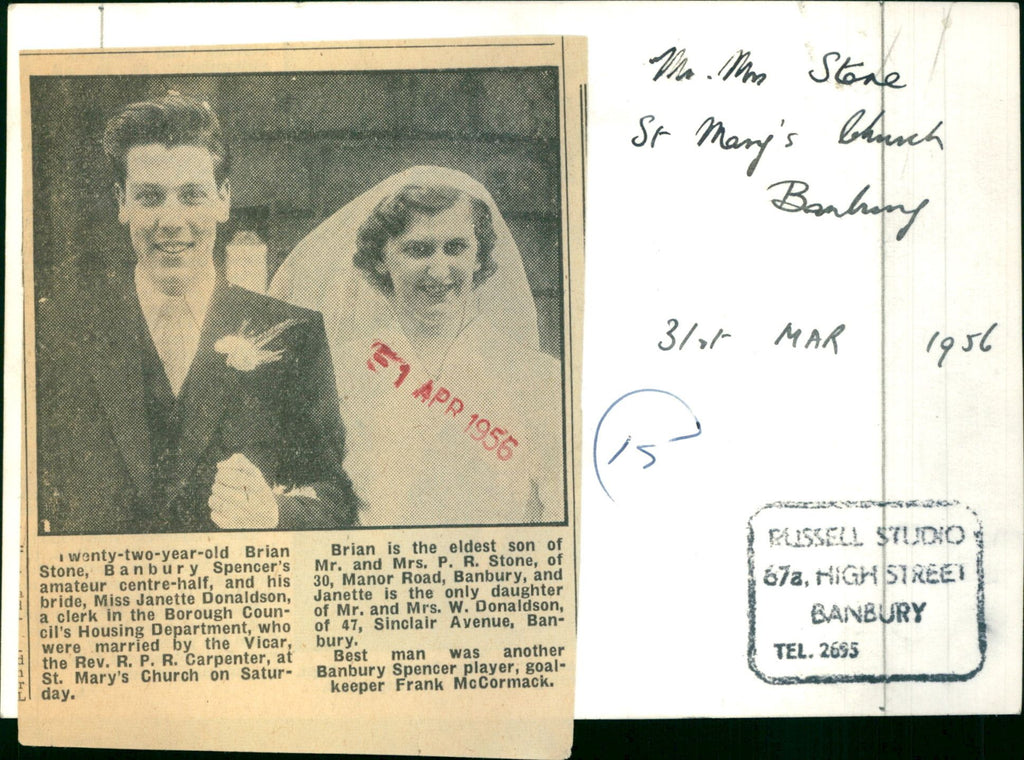 Mr. Mrs Stone
St Mary's Church
Banbury
31st MAR 1956
15
RUSSELL STUDIO
67a, HIGH STREET
BANBURY
TEL. 2695
APR 1956
Twenty-two-year-old Brian
Stone, Banbury Spencer's
amateur centre-half, and his
bride, Miss Janette Donaldson,
a clerk in the Borough Coun-
cil's Housing Department, who
were married by the Vicar,
the Rev. R. P. R. Carpenter, at
St. Mary's Church on Satur-
day.
Brian is the eldest son of
Mr. and Mrs. P. R. Stone, of
30, Manor Road, Banbury, and
Janette is the only daughter
of Mr. and Mrs. W. Donaldson,
of 47, Sinclair Avenue, Ban-
bury.
Best man was another
Banbury Spencer player, goal-
keeper Frank McCormack.